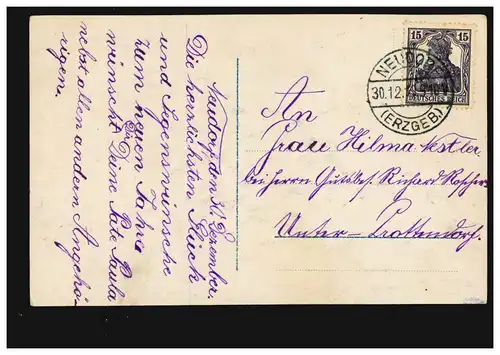 Neudorf, den 30. Dezember.
Die herzlichsten Glück
und Segenswünsche
zum neuen Jahre
Dir
wünscht Deine Pate Paula
nebst allen andern Angehö-
rigen.
15 15
DEUTSCHES REICH
NEUDORF
30.12.
(ERZGEB.)
An
Frau Hilma Nestler
bei Herrn Gutsbes. Richard Roscher
Unter-Crottendorf.